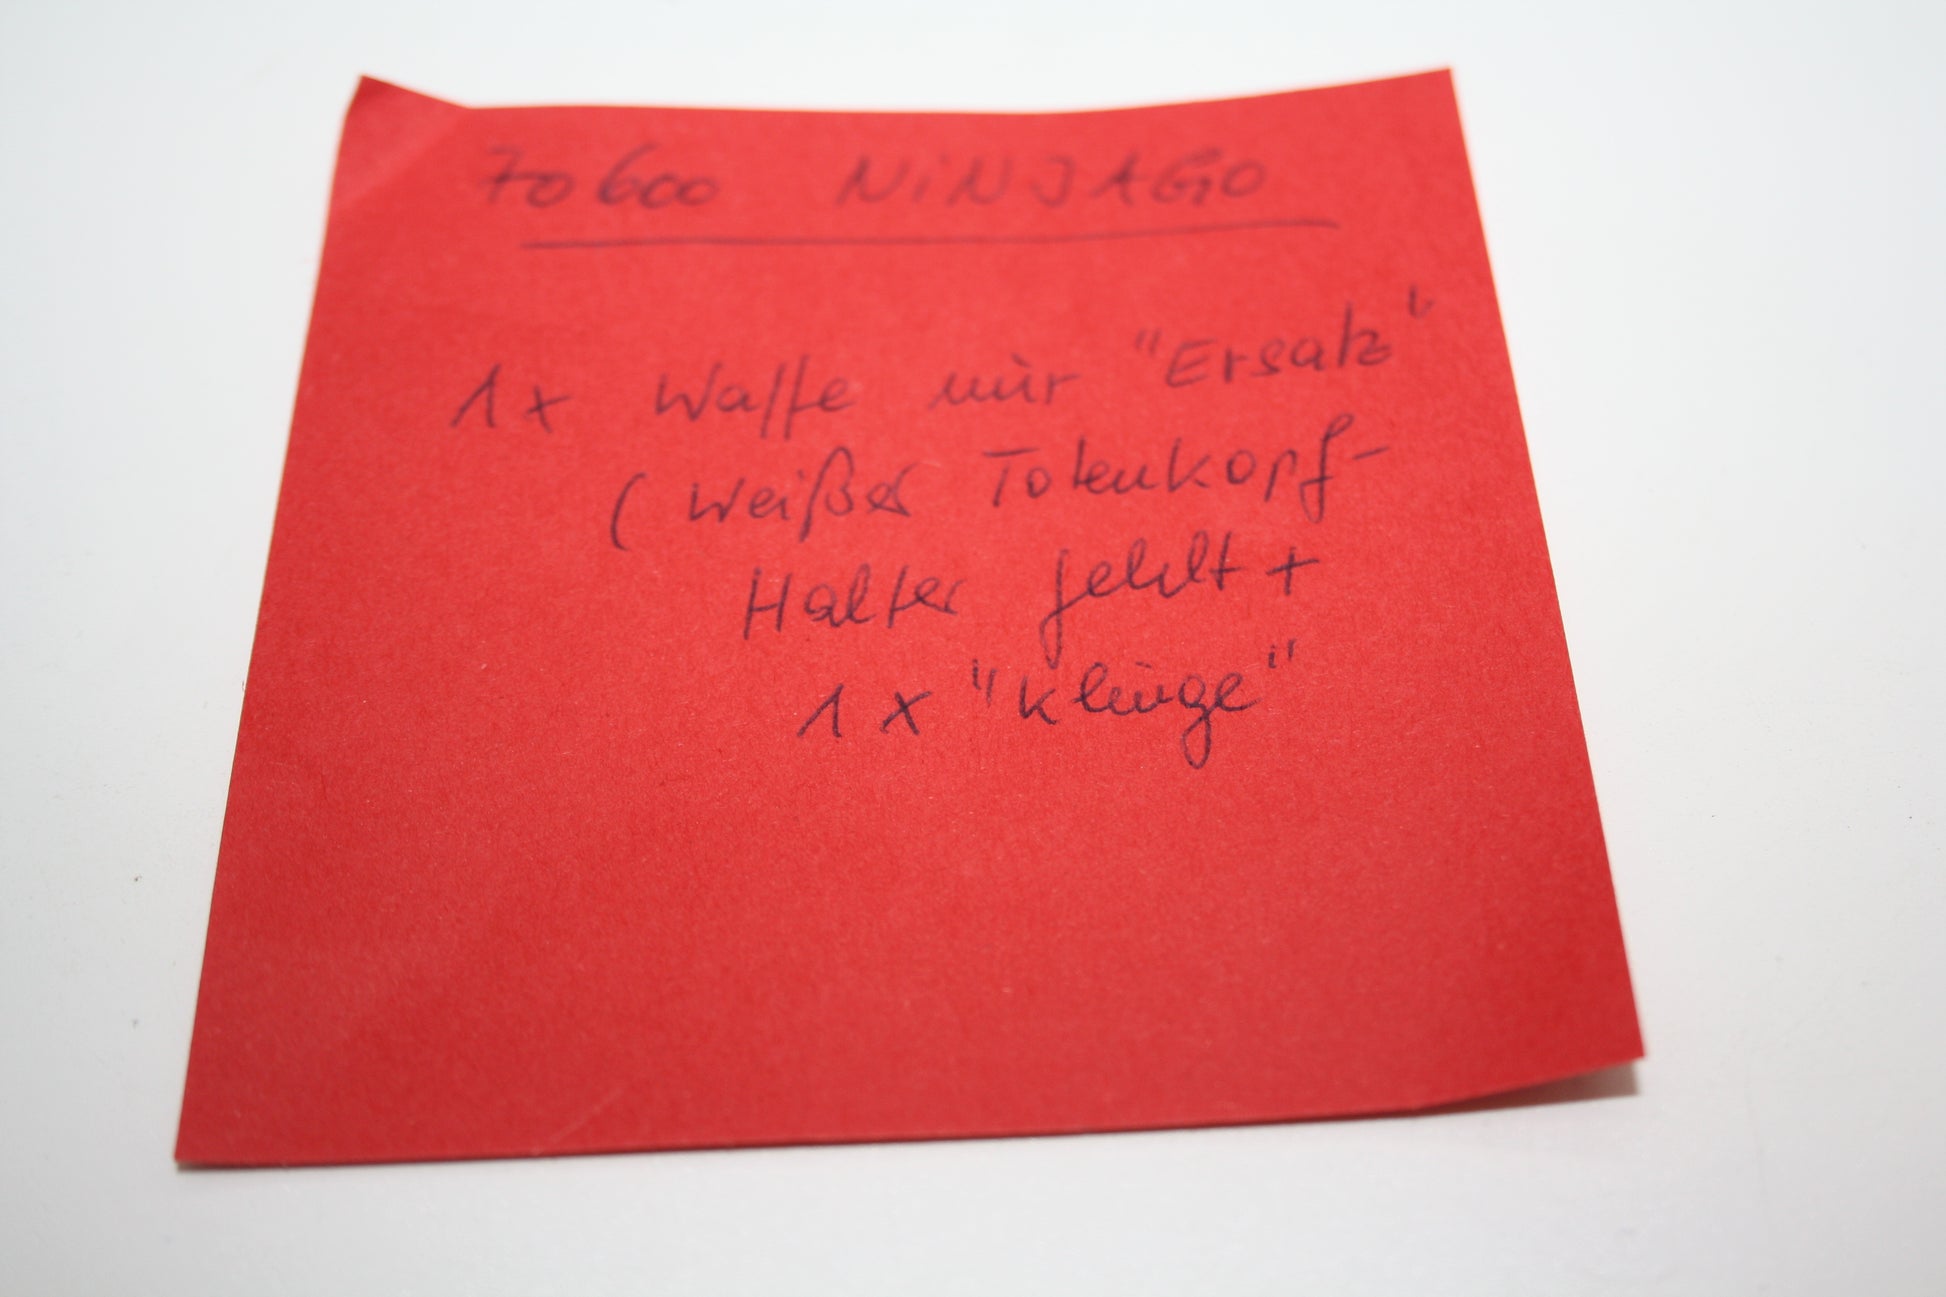 70600 NiNJAGO
1x Waffe mir "Ersatz"
(weißer Totenkopf-
Halter fehlt +
1x "Klinge"